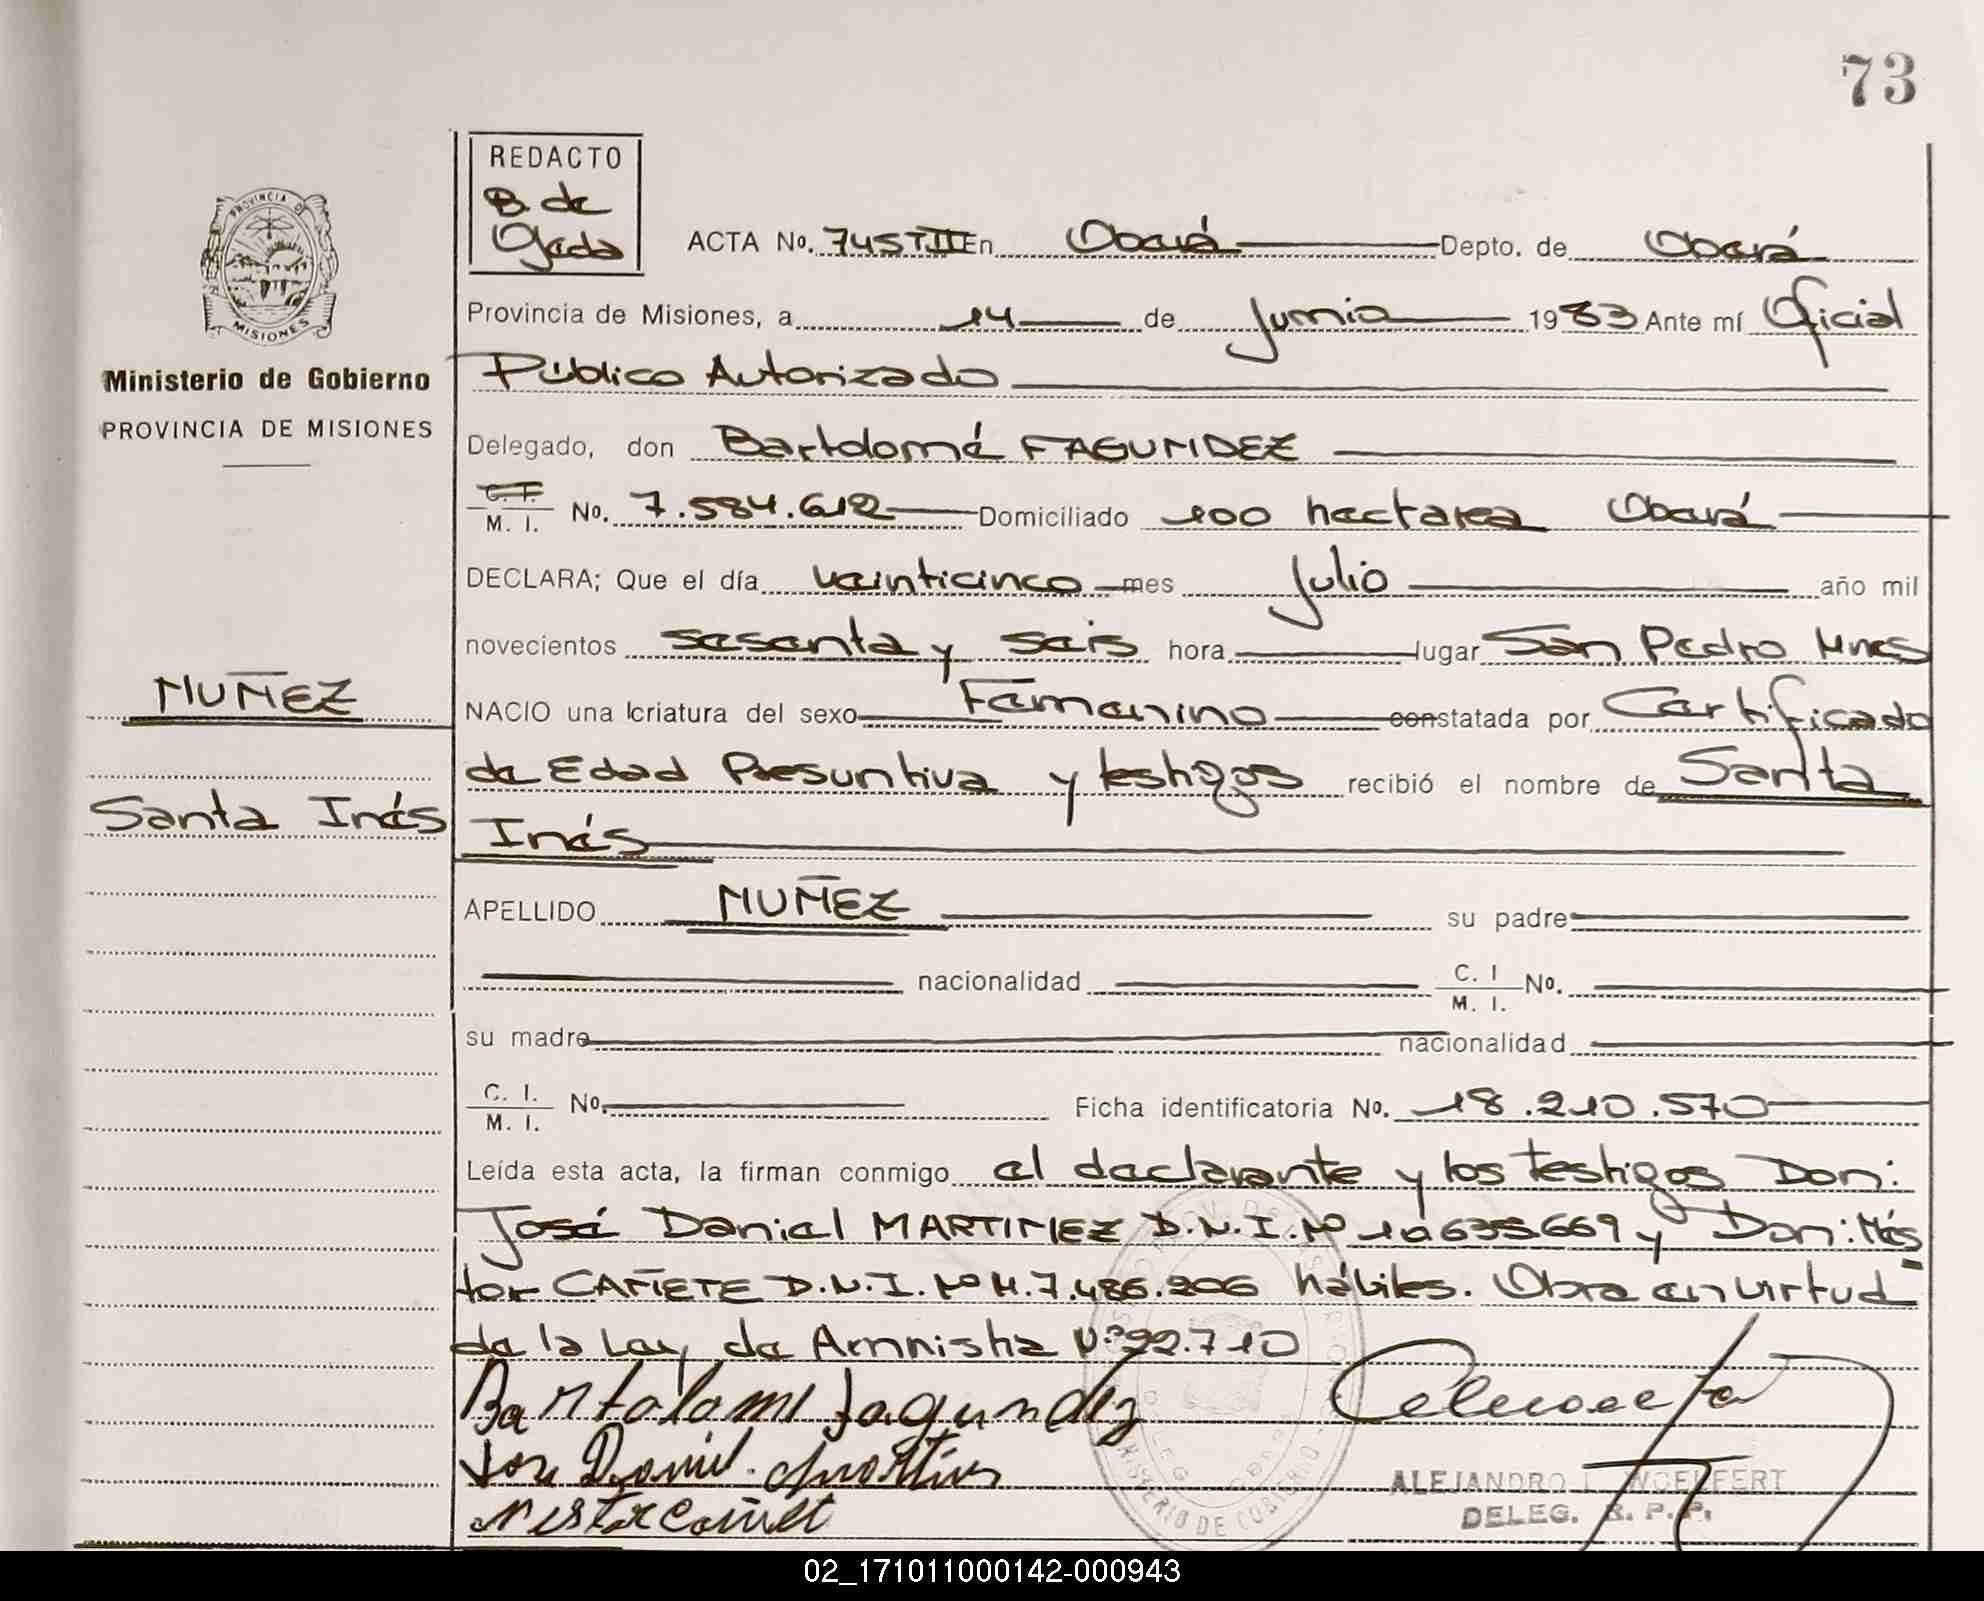 73
REDACTO
B. de
Ojeda
PROVINCIA DE
MISIONES
Ministerio de Gobierno
PROVINCIA DE MISIONES
ACTA No. 74ST III En Oberá Depto. de Oberá
Provincia de Misiones, a 14 de Junio 1983 Ante mí Oficial
Público Autorizado
Delegado, don Bartolomé FAGUNDEZ
C. I.
M. I. No. 7.584.612 Domiciliado 100 hectarea Oberá
DECLARA; Que el día veinticinco mes Julio año mil
novecientos sesenta y seis hora lugar San Pedro Mnes
NUÑEZ
NACIO una criatura del sexo Femenino constatada por Certificado
de Edad Presuntiva y testigos recibió el nombre de Santa
Santa Inés
Inés
APELLIDO NUÑEZ su padre
nacionalidad C. I
M. I. No.
su madre nacionalidad
C. I.
M. I. No. Ficha identificatoria No. 18.210.570
Leída esta acta, la firman conmigo el declarante y los testigos Don:
José Daniel MARTINEZ D.N.I. Nº 10635669 y Don: Nés
tor CAÑETE D.N.I. Nº M. 7.486.206 hábiles. Obra en virtud
de la Ley de Amnistia Nº 22.710
Bartolome Fagundez
Jose Daniel Martines
Nestor Cañet
ALEJANDRO L. WOELFERT
DELEG. R. P. P.
MINISTERIO DE GOBIERNO
02_171011000142-000943